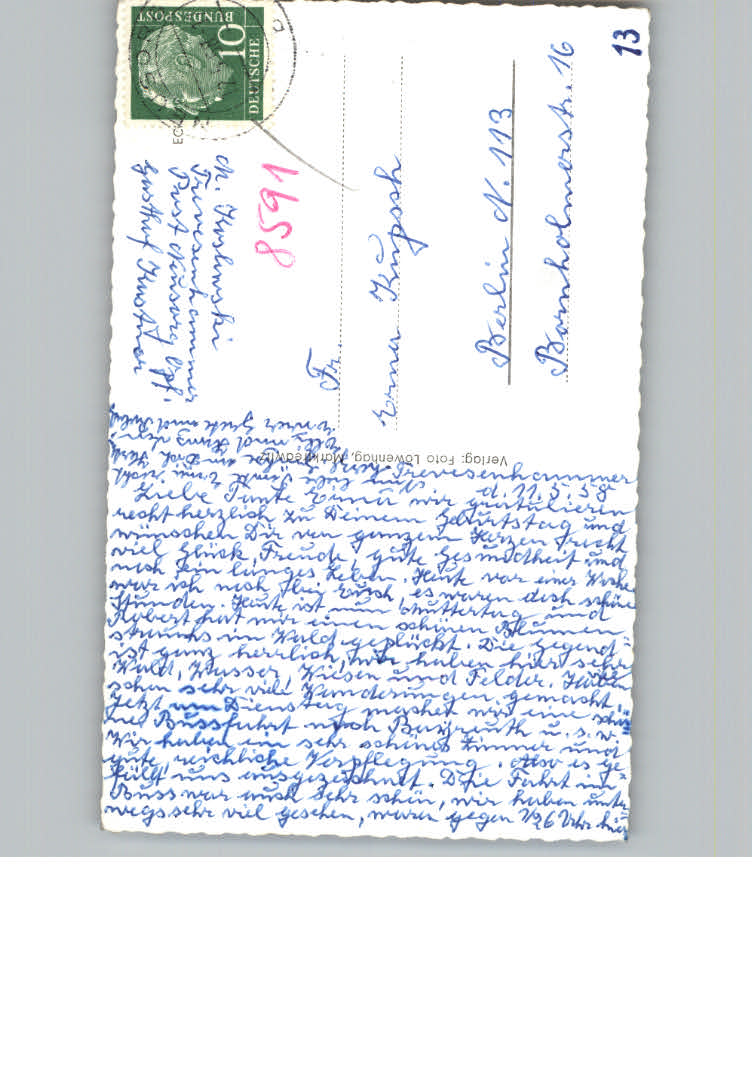 Trevesenhammer
d. 11.5.58
Liebe Tante Erna wir gratulieren
recht herzlich zu Deinem Geburtstag und
wünschen Dir von ganzem Herzen recht
viel Glück, Freude, gute Gesundheit und
noch ein langes Leben. Heute vor einer Woche
war ich noch bei Euch, es waren doch schöne
Stunden. Heute ist nun Muttertag und
Robert hat mir einen schönen Blumen-
strauss im Wald gepflückt. Die Gegend
ist ganz herrlich, wir haben hier sehr
Wald, Wasser, Wiesen und Felder. Haben
schon sehr viele Wanderungen gemacht.
Jetzt am Dienstag machen wir eine schö-
ne Bussfahrt nach Bayreuth u.s.w.
Wir haben ein sehr schönes Zimmer und
gute, reichliche Verpflegung. Also es ge-
fällt uns ausgezeichnet. Die Fahrt im
Buss war auch sehr schön, wir haben unter-
wegs sehr viel gesehen, waren gegen 1/26 Uhr hier
Verlag: Foto Löwenhag, Marktredwitz
Trevesenhammer
Post
8591
Fr.
Erna
Berlin N. 113
Bornholmerstr. 16
13
10
DEUTSCHE
BUNDESPOST